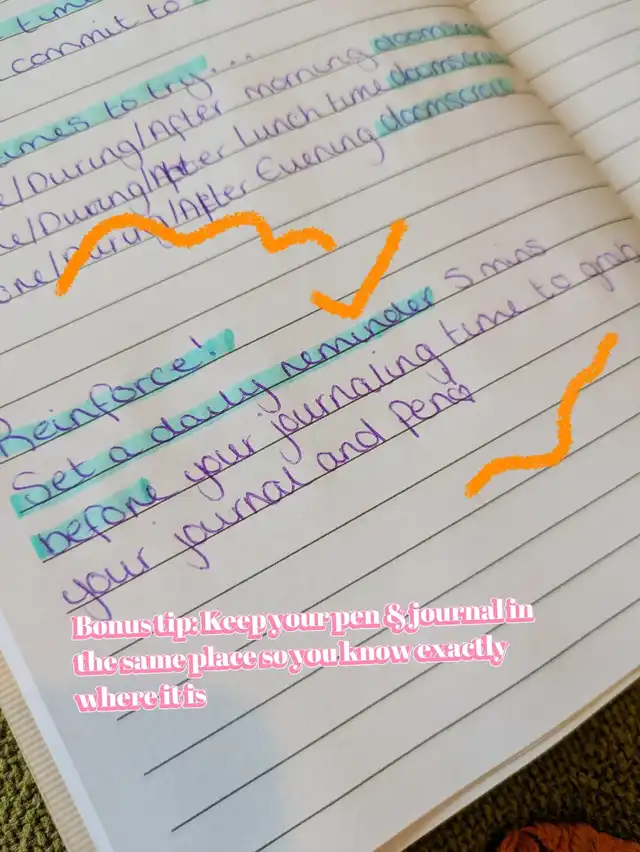 commit to
times to try...
/During/After morning doomscroll
/During/After lunch time doomscroll
/During/After Evening doomscroll
Reinforce!
Set a daily reminder 5 mins
before your journaling time to grab
your journal and pen
Bonus tip: Keep your pen & journal in
the same place so you know exactly
where it is